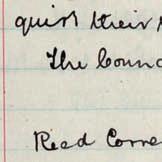 their
The Counc
Read Corre